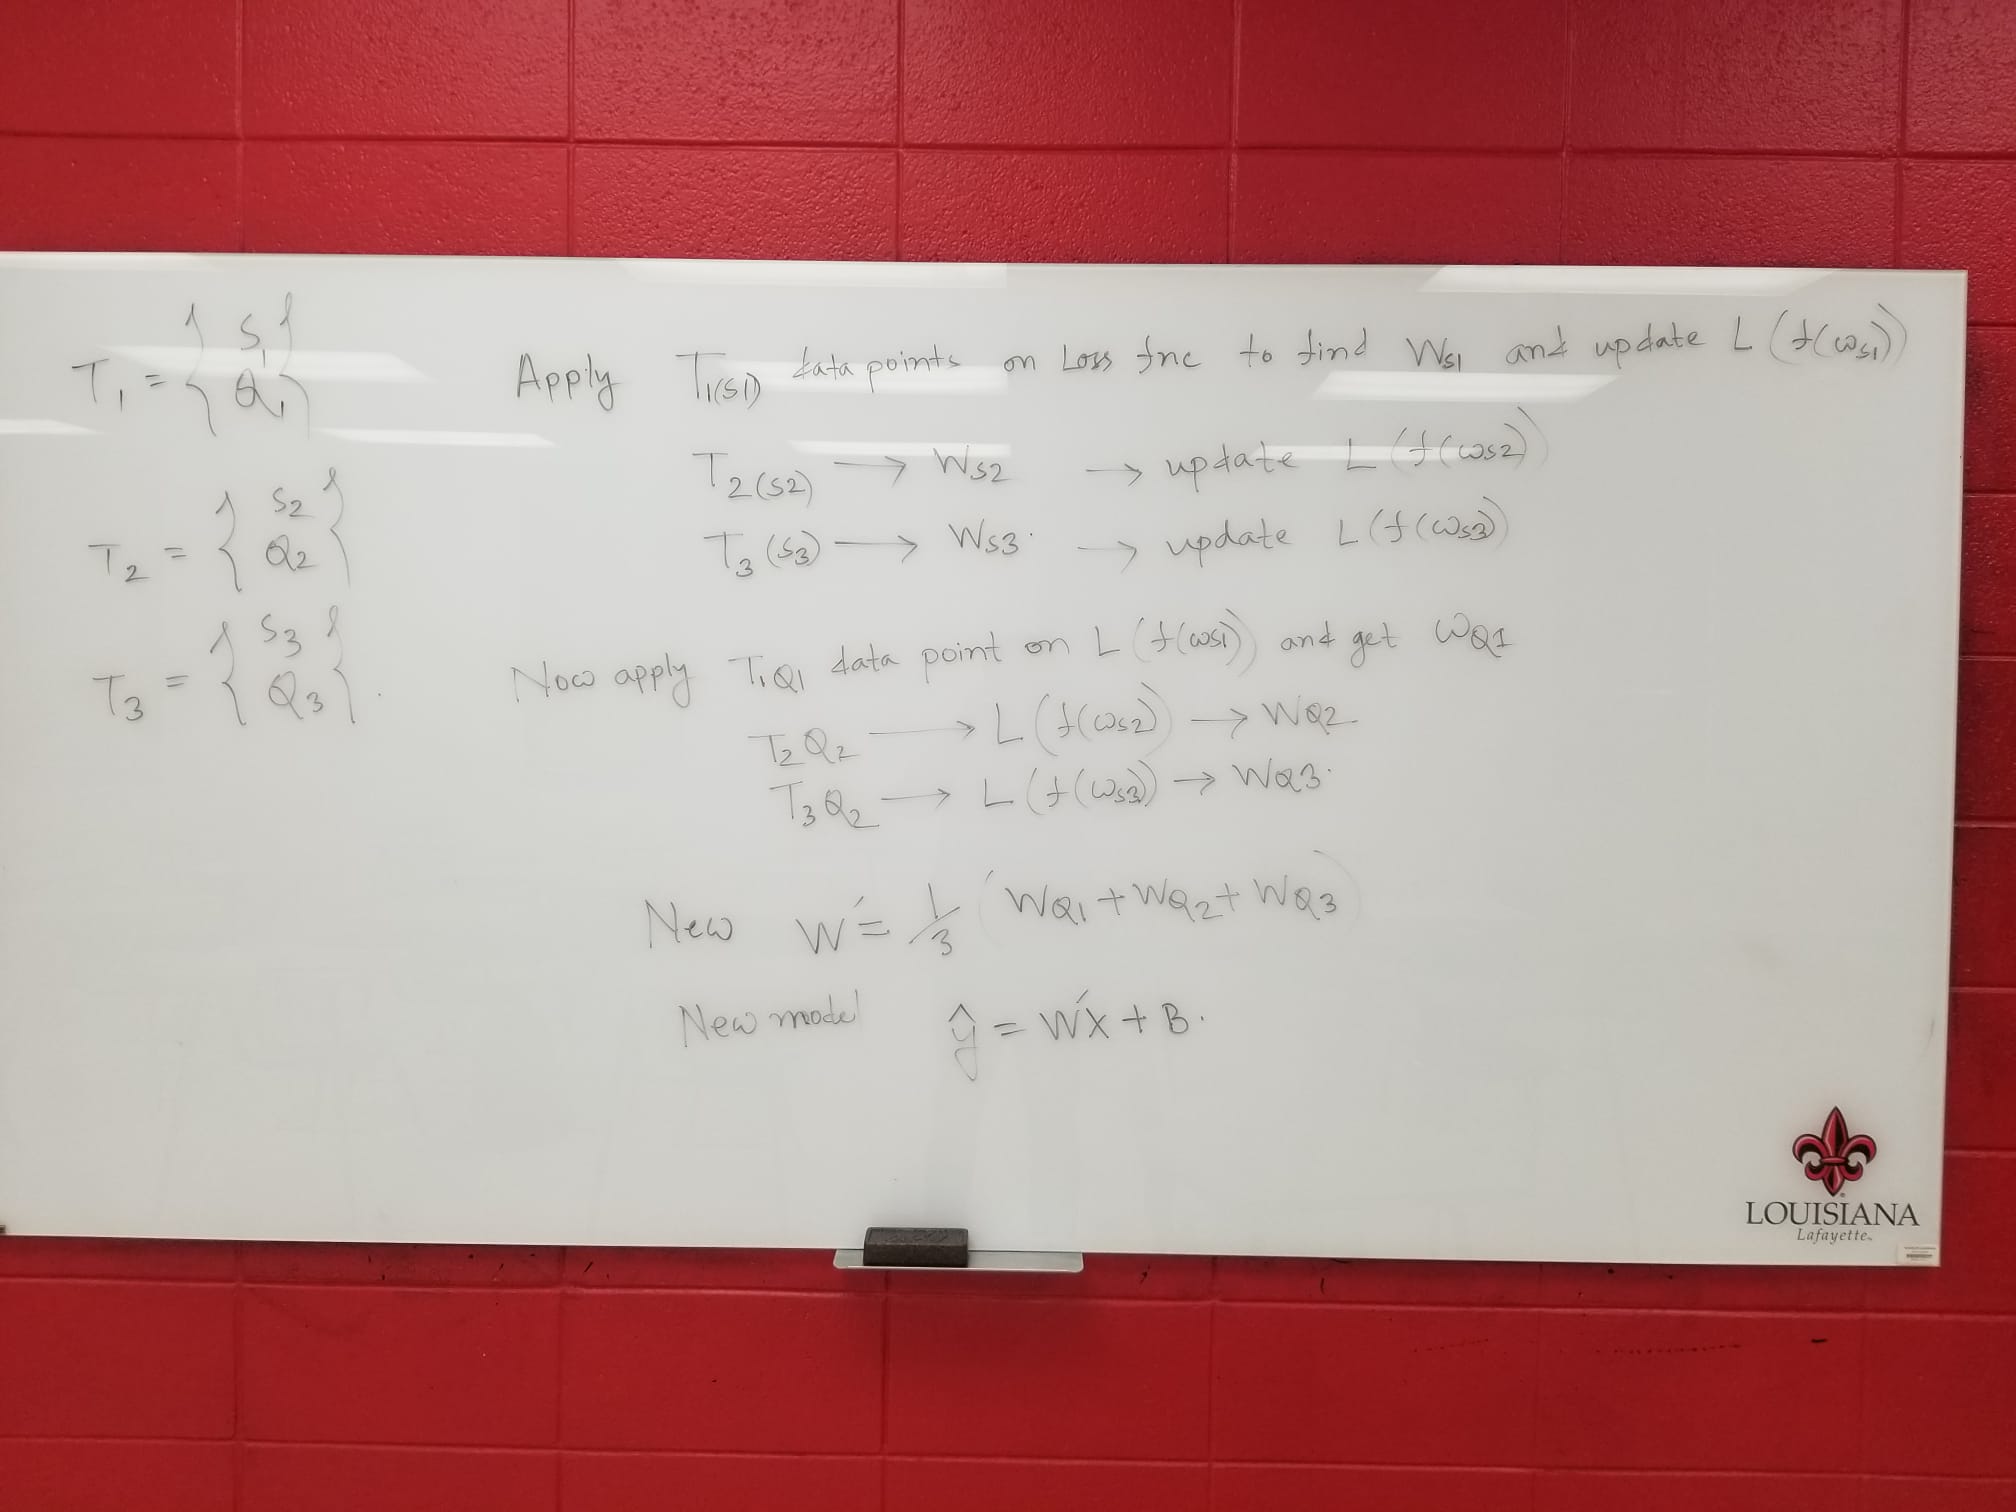 T₁ = { S₁ Q₁ }
T₂ = { S₂ Q₂ }
T₃ = { S₃ Q₃ }.
Apply T₁(S1) data points on Loss fnc to find W_S1 and update L (f(ω_S1))
T₂(S2) → W_S2 → update L (f(ω_S2))
T₃(S₃) → W_S3. → update L (f(ω_S3))
Now apply T₁Q₁ data point on L (f(ω_S1)) and get W_Q1
T₂ Q₂ → L (f(ω_S2)) → W_Q2
T₃ Q₂ → L (f(ω_S3)) → W_Q3.
New W′ = 1/3 (W_Q1 + W_Q2 + W_Q3)
New model ŷ = W′X + B.
LOUISIANA
Lafayette